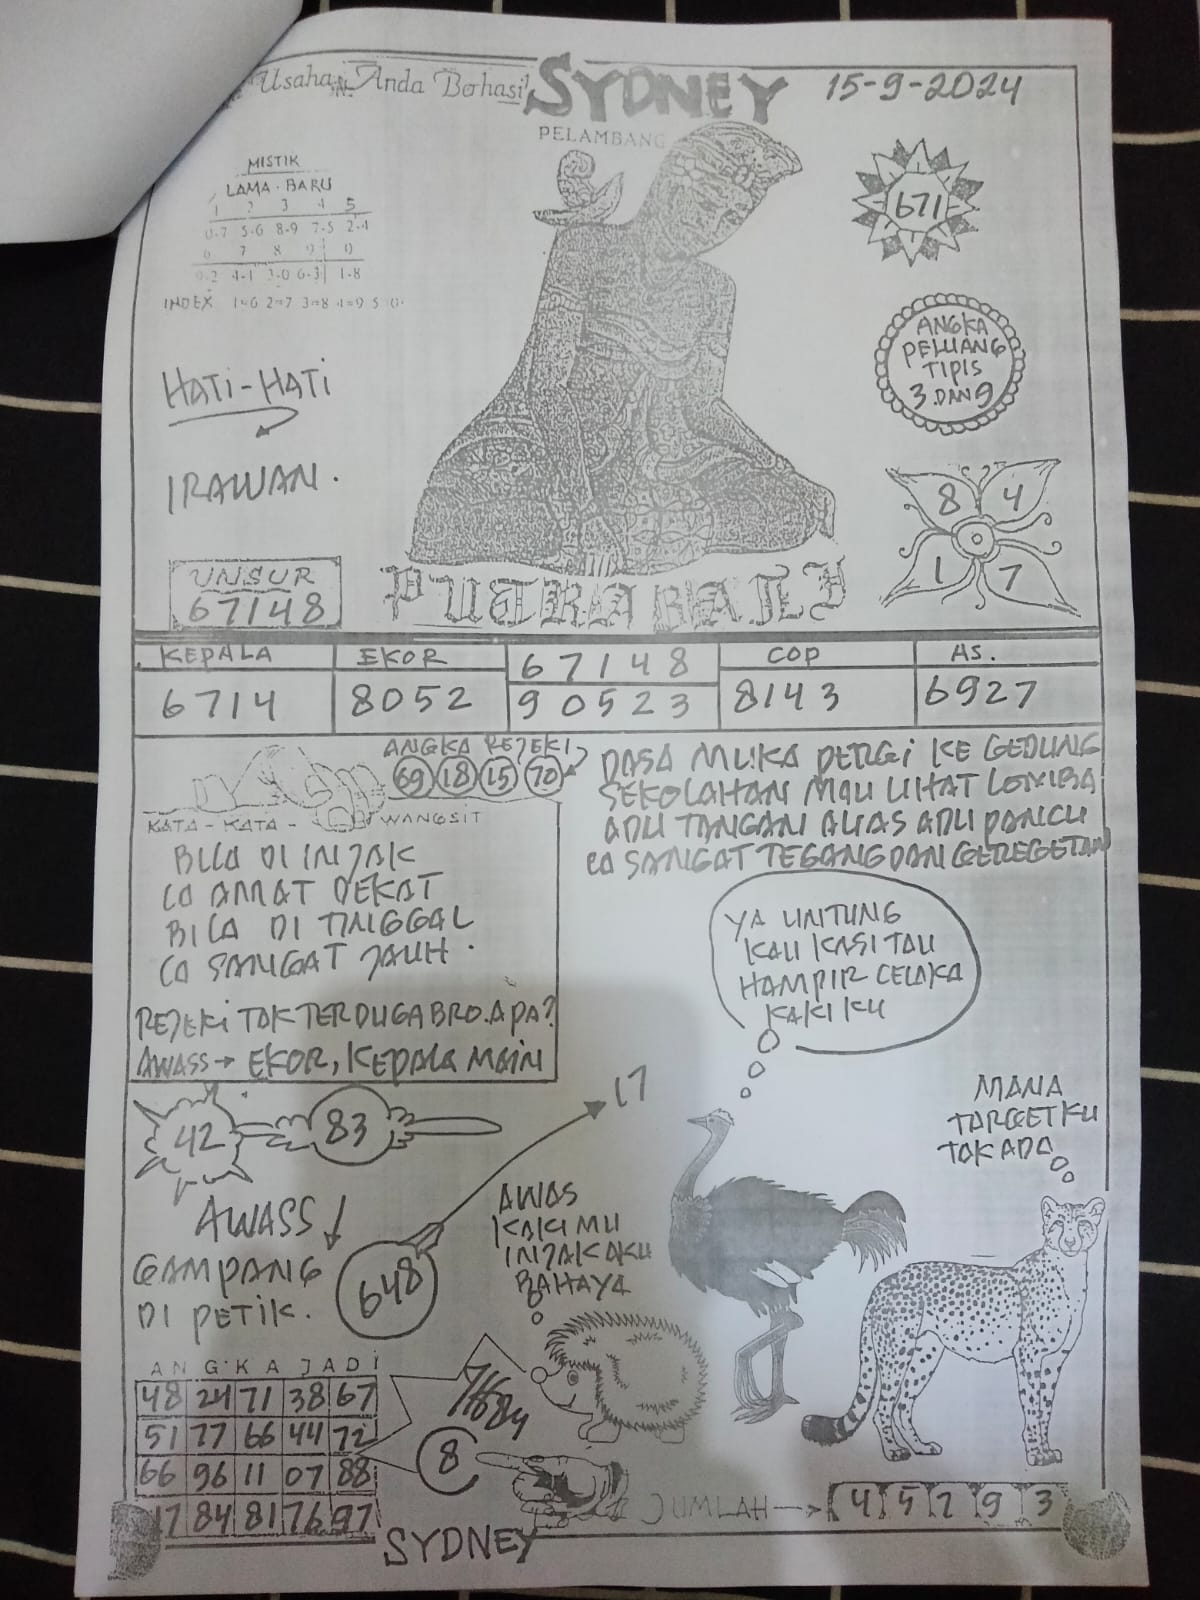 Usaha Anda Berhasil
SYDNEY
15-9-2024
PELAMBANG
MISTIK
LAMA · BARU
1 2 3 4 5
0-7 5-6 8-9 7-5 2-4
6 7 8 9 0
9-2 4-1 3-0 6-3 1-8
INDEX 1=6 2=7 3=8 4=9 5
671
ANGKA
PELUANG
TIPIS
3 DAN 9
HATI-HATI
IRAWAN.
8 4
1 7
UNSUR
67148
PUTRA BALI
KEPALA EKOR 67148 COP AS.
6714 8052 90523 8143 6927
ANGKA REJEKI
69 18 15 70
KATA-KATA-WANGSIT
BILA DI INJAK
IA AMAT DEKAT
BILA DI TINGGAL
IA SANGAT JAUH.
REJEKI TAK TERDUGA BRO. APA?
AWASS → EKOR, KEPALA MAIN
DASA MUKA PERGI KE GEDUNG
SEKOLAHAN MAU LIHAT LOMBA
ADU TANGAN ALIAS ADU PANCU
IA SANGAT TEGANG DAN GEREGETAN
YA UNTUNG
KAU KASI TAU
HAMPIR CELAKA
KAKI KU
MANA
TARGETKU
TAK ADA
42 83
17
AWASS
GAMPANG
DI PETIK.
648
AWAS
KAKIMU
INJAK AKU
BAHAYA
ANGKA JADI
48 24 71 38 67
51 77 66 44 72
66 96 11 07 88
17 84 81 76 97
8
JUMLAH → 4 5 7 9 3
SYDNEY